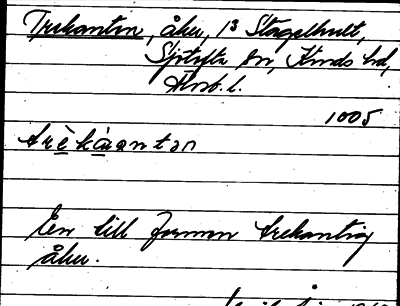 Trekanten, åker, 13 Stagelhult,
Sn, Kinds hd,
Älvsb. l.
1005
trèkànntən
En till formen trekantig
åker.